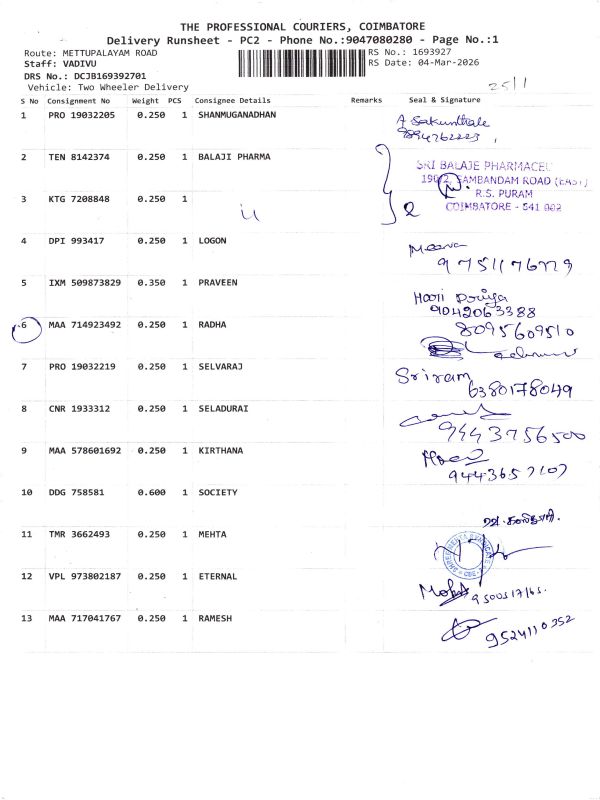 THE PROFESSIONAL COURIERS, COIMBATORE
Delivery Runsheet - PC2 - Phone No.:9047080280 - Page No.:1
Route: METTUPALAYAM ROAD
RS No.: 1693927
Staff: VADIVU
RS Date: 04-Mar-2026
DRS No.: DCJB169392701
Vehicle: Two Wheeler Delivery
25/1
S No Consignment No Weight PCS Consignee Details Remarks Seal & Signature
1 PRO 19032205 0.250 1 SHANMUGANADHAN
A Sakunthale
9894762223
2 TEN 8142374 0.250 1 BALAJI PHARMA
SRI BALAJE PHARMACEU
190/2, SAMBANDAM ROAD (EAST)
R.S. PURAM
COIMBATORE - 641 002
3 KTG 7208848 0.250 1
2
4 DPI 993417 0.250 1 LOGON
Meena
5 IXM 509873829 0.350 1 PRAVEEN
Hari Priya
9042063388
6 MAA 714923492 0.250 1 RADHA
8095609510
7 PRO 19032219 0.250 1 SELVARAJ
Sriram
6380178049
8 CNR 1933312 0.250 1 SELADURAI
9443756500
9 MAA 578601692 0.250 1 KIRTHANA
10 DDG 758581 0.600 1 SOCIETY
11 TMR 3662493 0.250 1 MEHTA
12 VPL 973802187 0.250 1 ETERNAL
13 MAA 717041767 0.250 1 RAMESH
9524110352